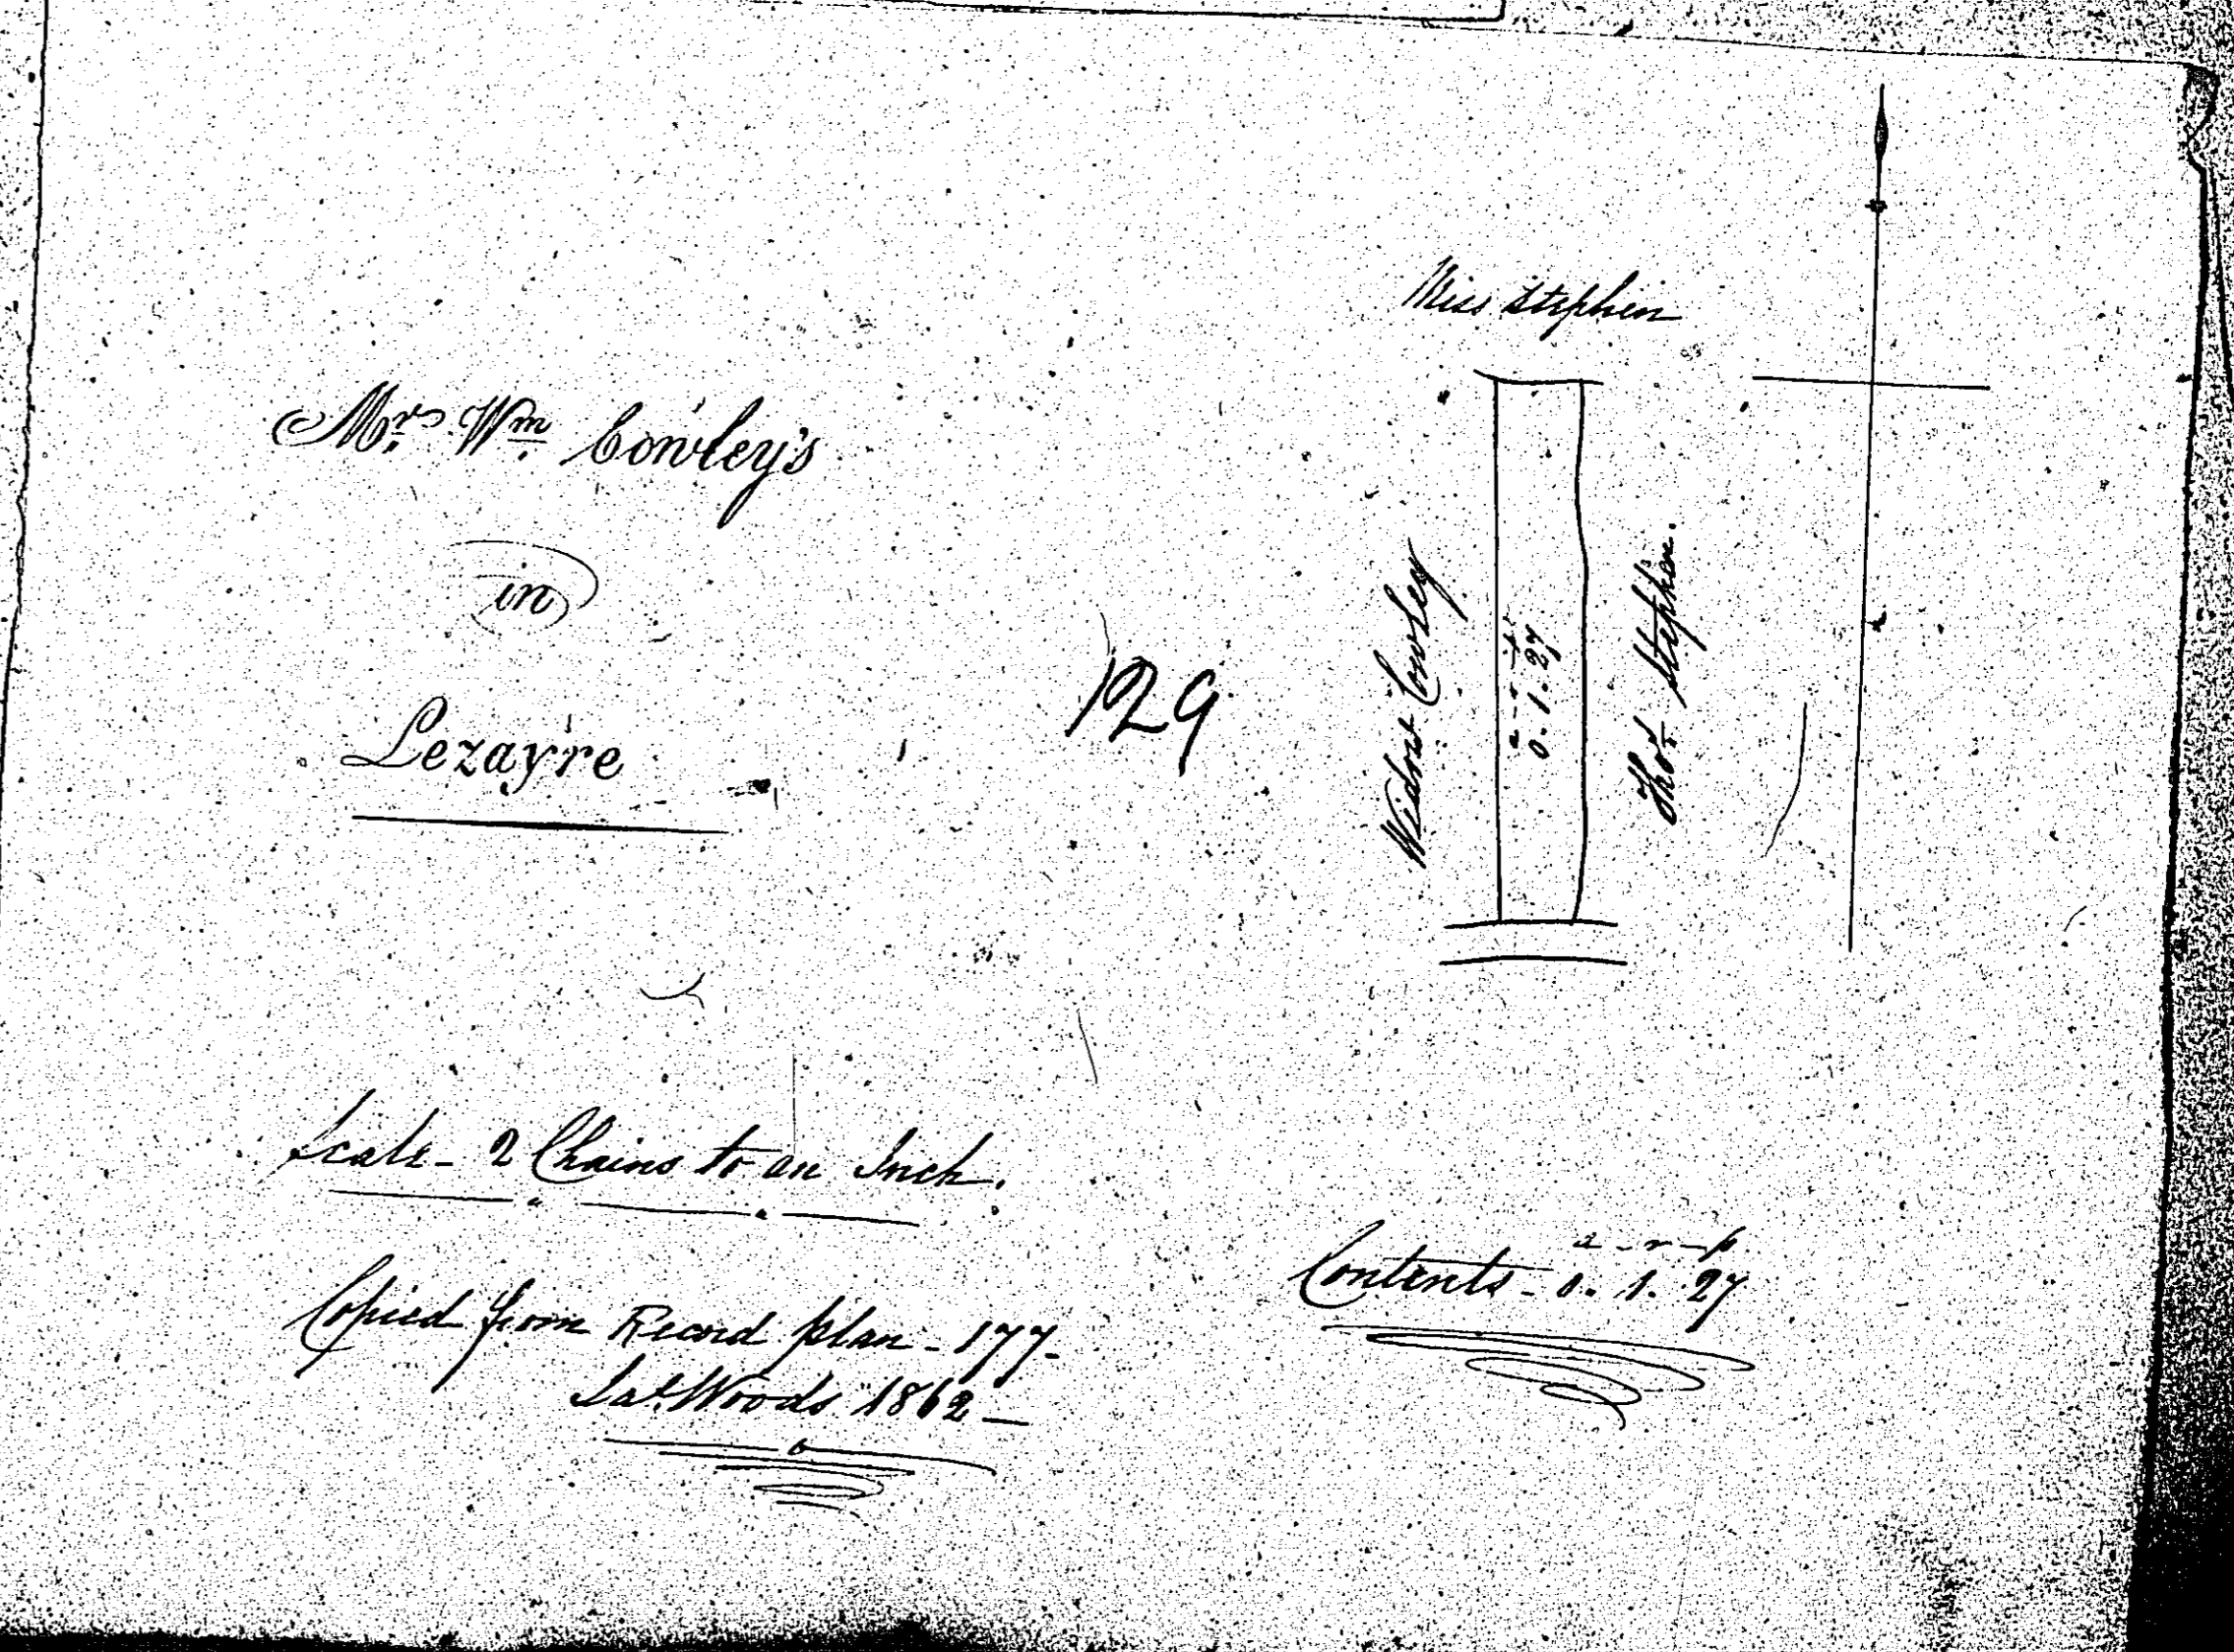 Mr. Wm. Cowley's
in
Lezayre
129
Miss Stephen
Widow Cowley
a - r - p
0. 1. 27
Thos. Stephen.
Scale - 2 Chains to an Inch.
Copied from Record plan - 177 -
Woods 1862 —
a - r - p
Contents - 0. 1. 27